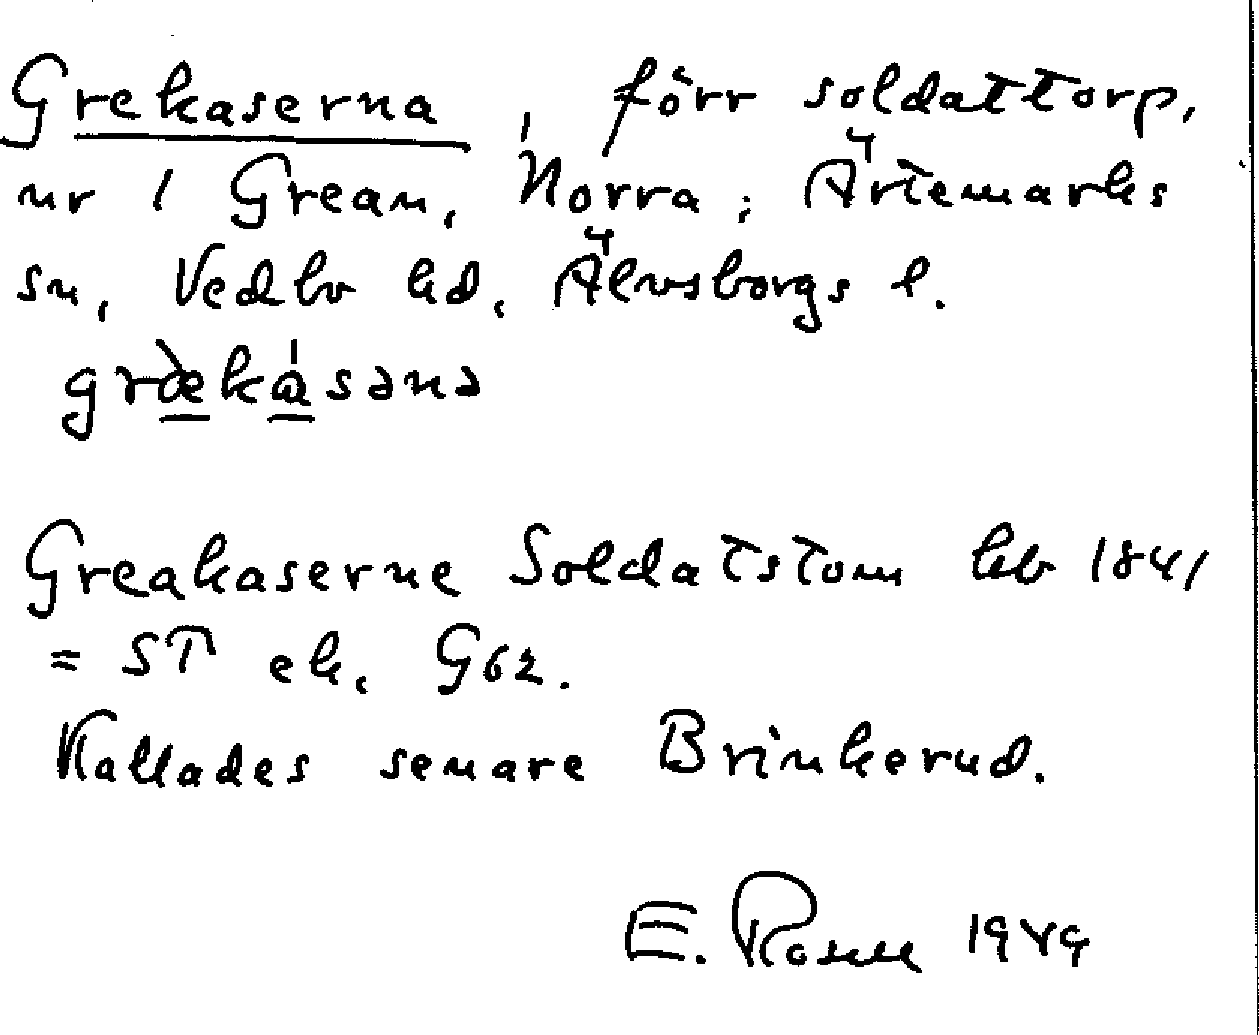 Grekaserna, förr soldattorp,
nr 1 Grean, Norra; Ärtemarks
sn, Vedbo hd, Älvsborgs l.
græ̀kásənə
Greakaserne Soldatstom hb 1841
= ST ek, G62.
Kallades senare Brinkerud.
E. Rosell 1949